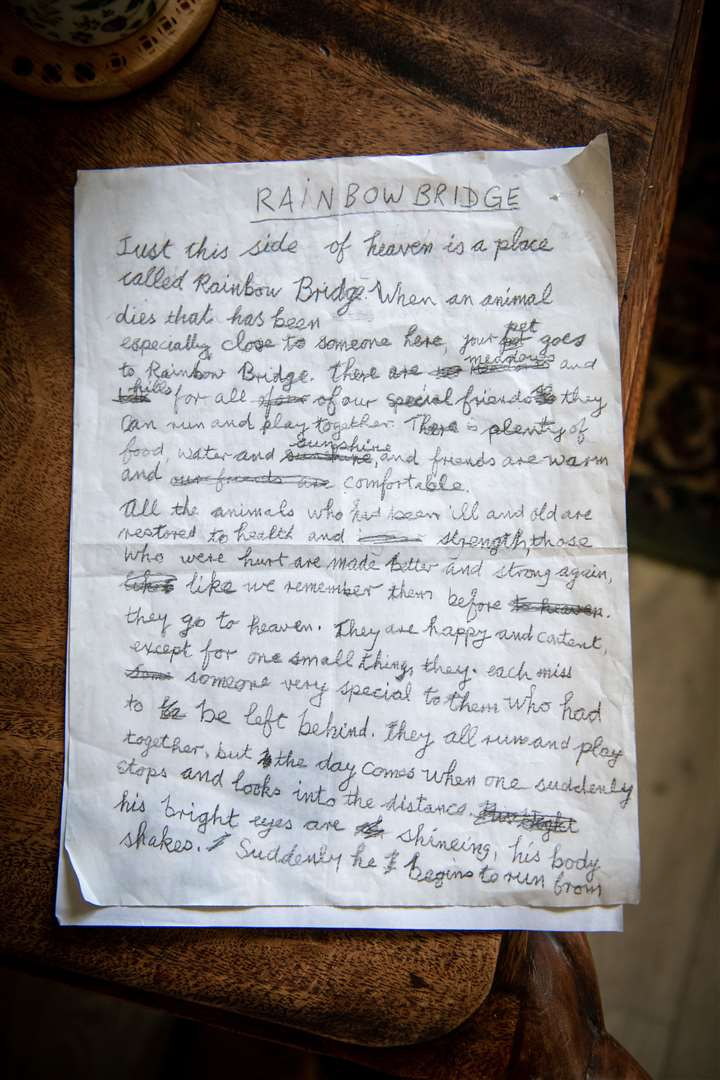 RAINBOW BRIDGE
Just this side of heaven is a place
called Rainbow Bridge. When an animal
dies that has been
especially close to someone here, your pet goes
to Rainbow Bridge. There are meadows and
hills for all of our special friends so they
can run and play together. There is plenty of
food, water and sunshine, and friends are warm
and our friends are comfortable.
All the animals who had been ill and old are
restored to health and strength, those
who were hurt are made better and strong again,
like we remember them before to heaven.
they go to heaven. They are happy and content,
except for one small thing, they. each miss
someone very special to them who had
to be left behind. They all run and play
together, but the day comes when one suddenly
stops and looks into the distance. His bright
his bright eyes are shineing, his body
shakes. Suddenly he begins to run from